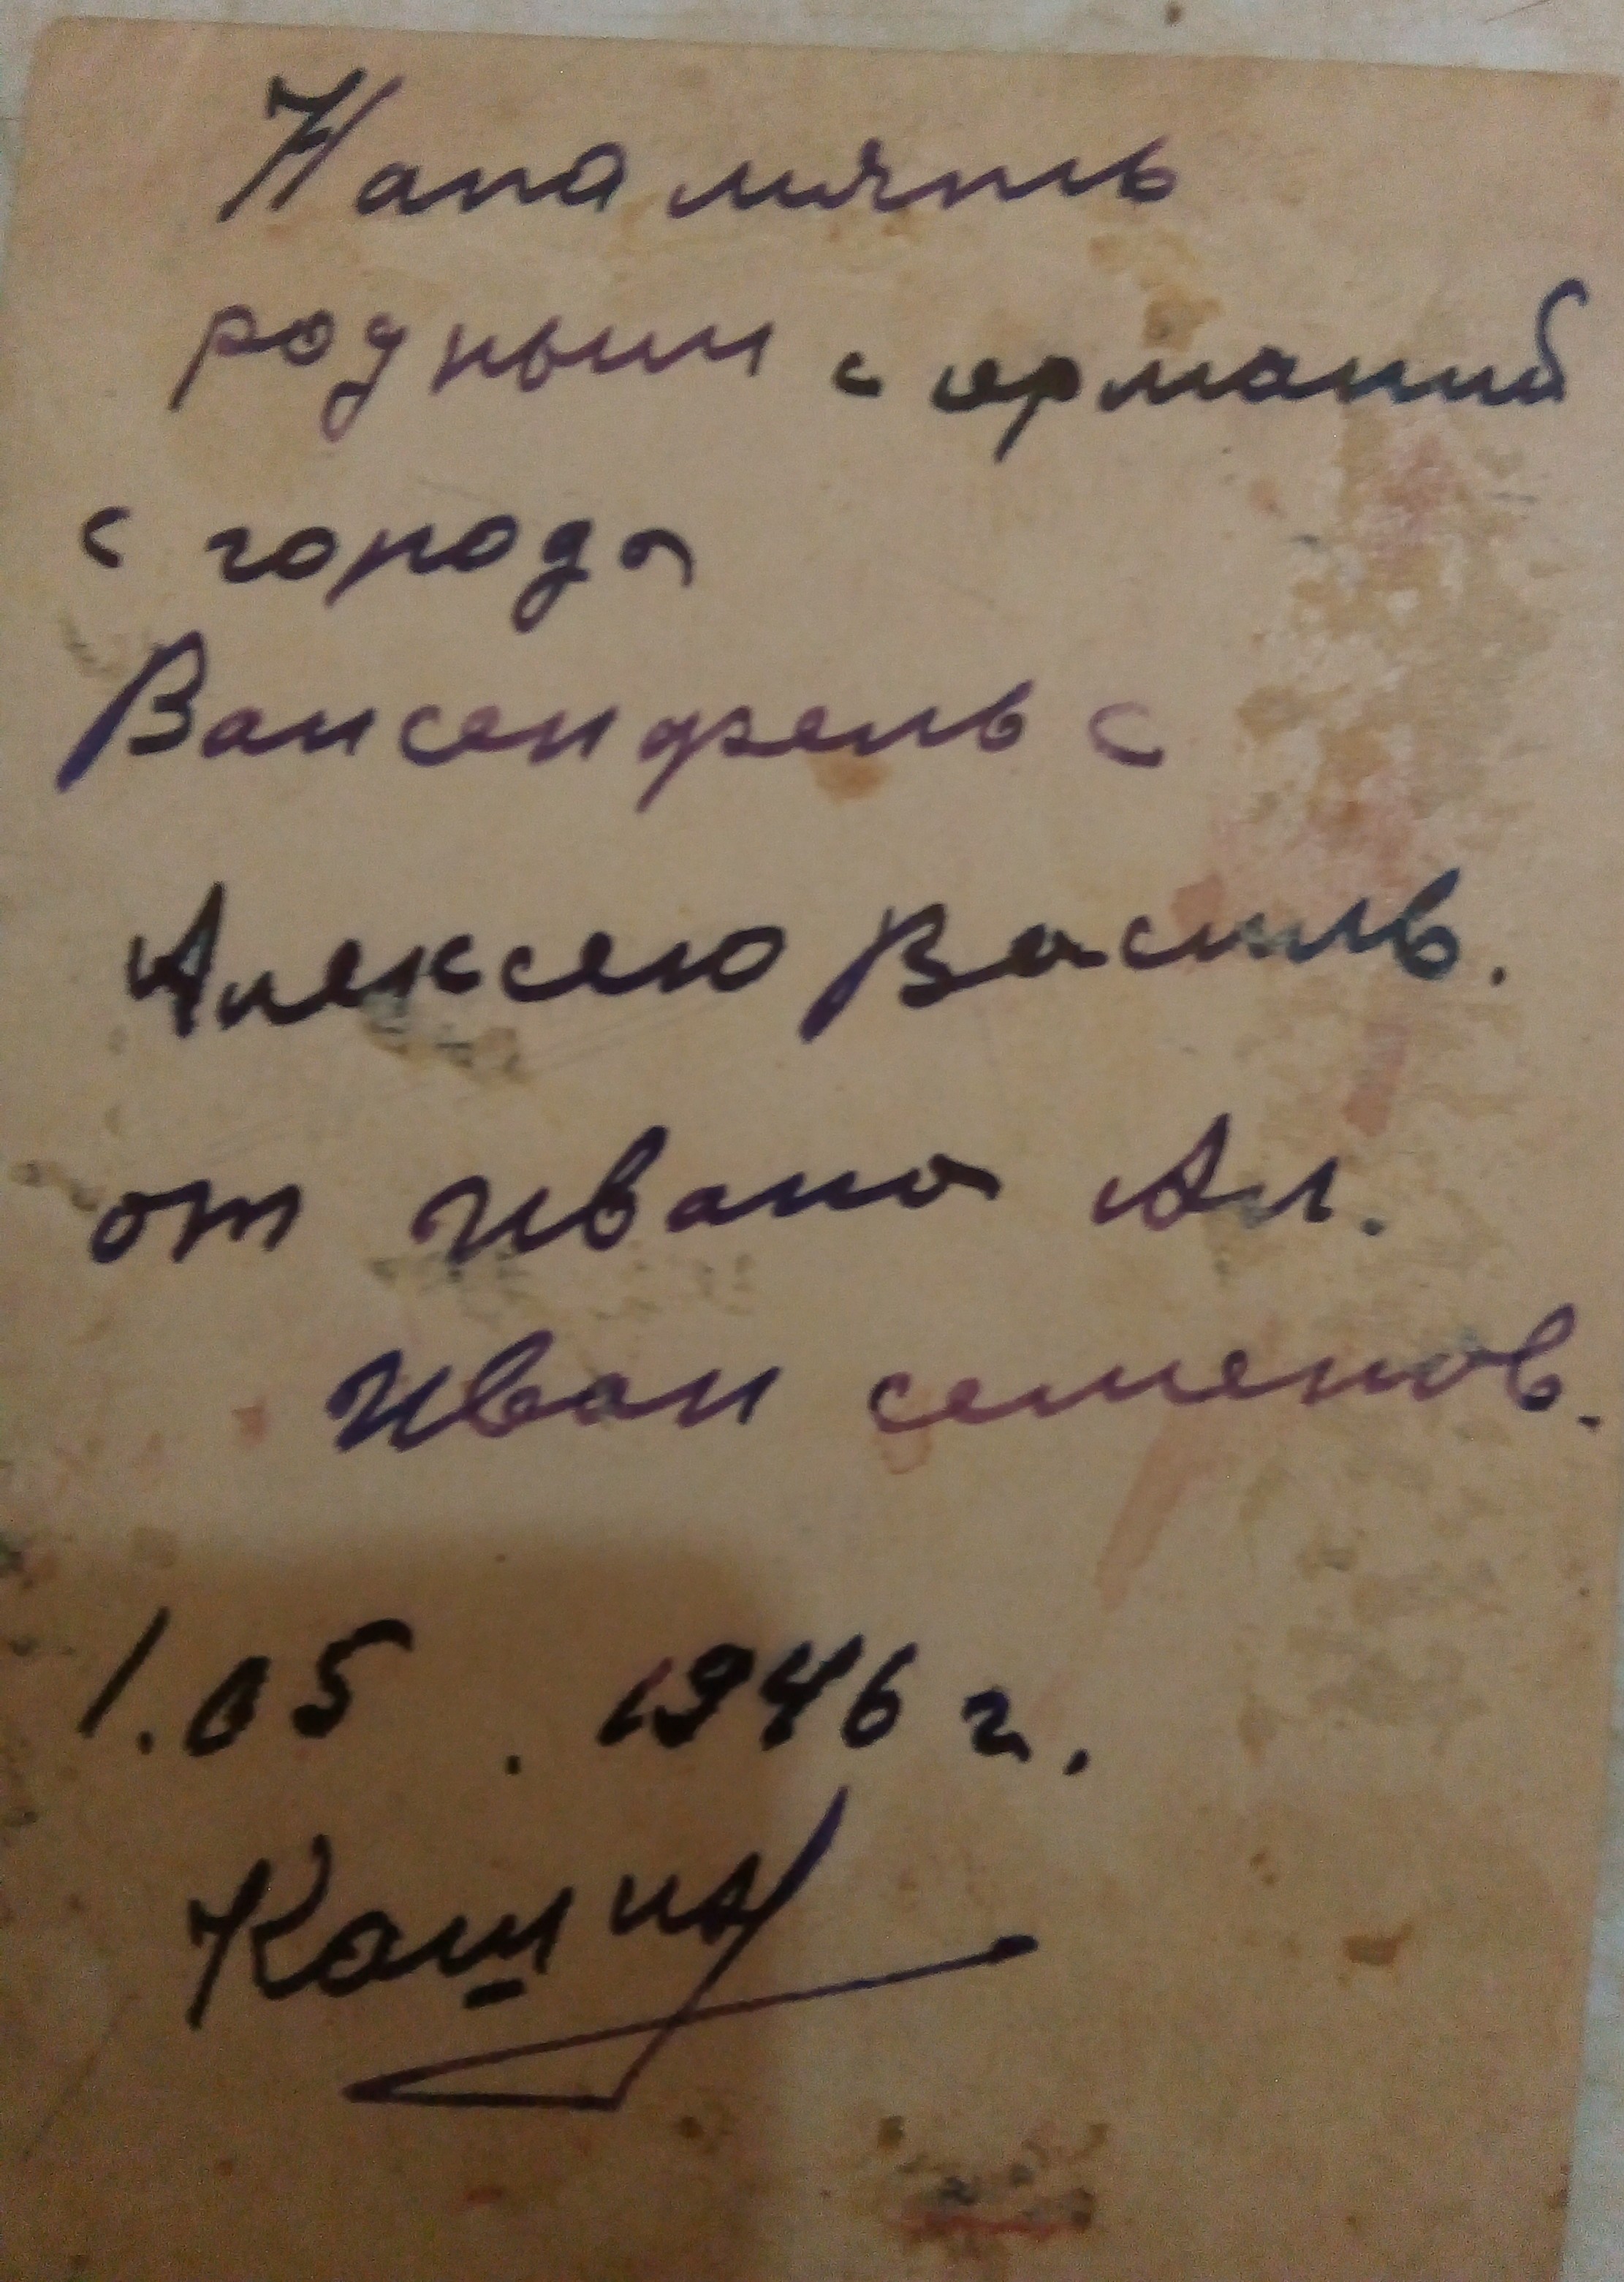 Напамять
родным с ермании
с города
Вансенфельс
Алексею Василь.
от Ивана Ал.
Иван семенов.
1.05. 1946 г.
Кашин